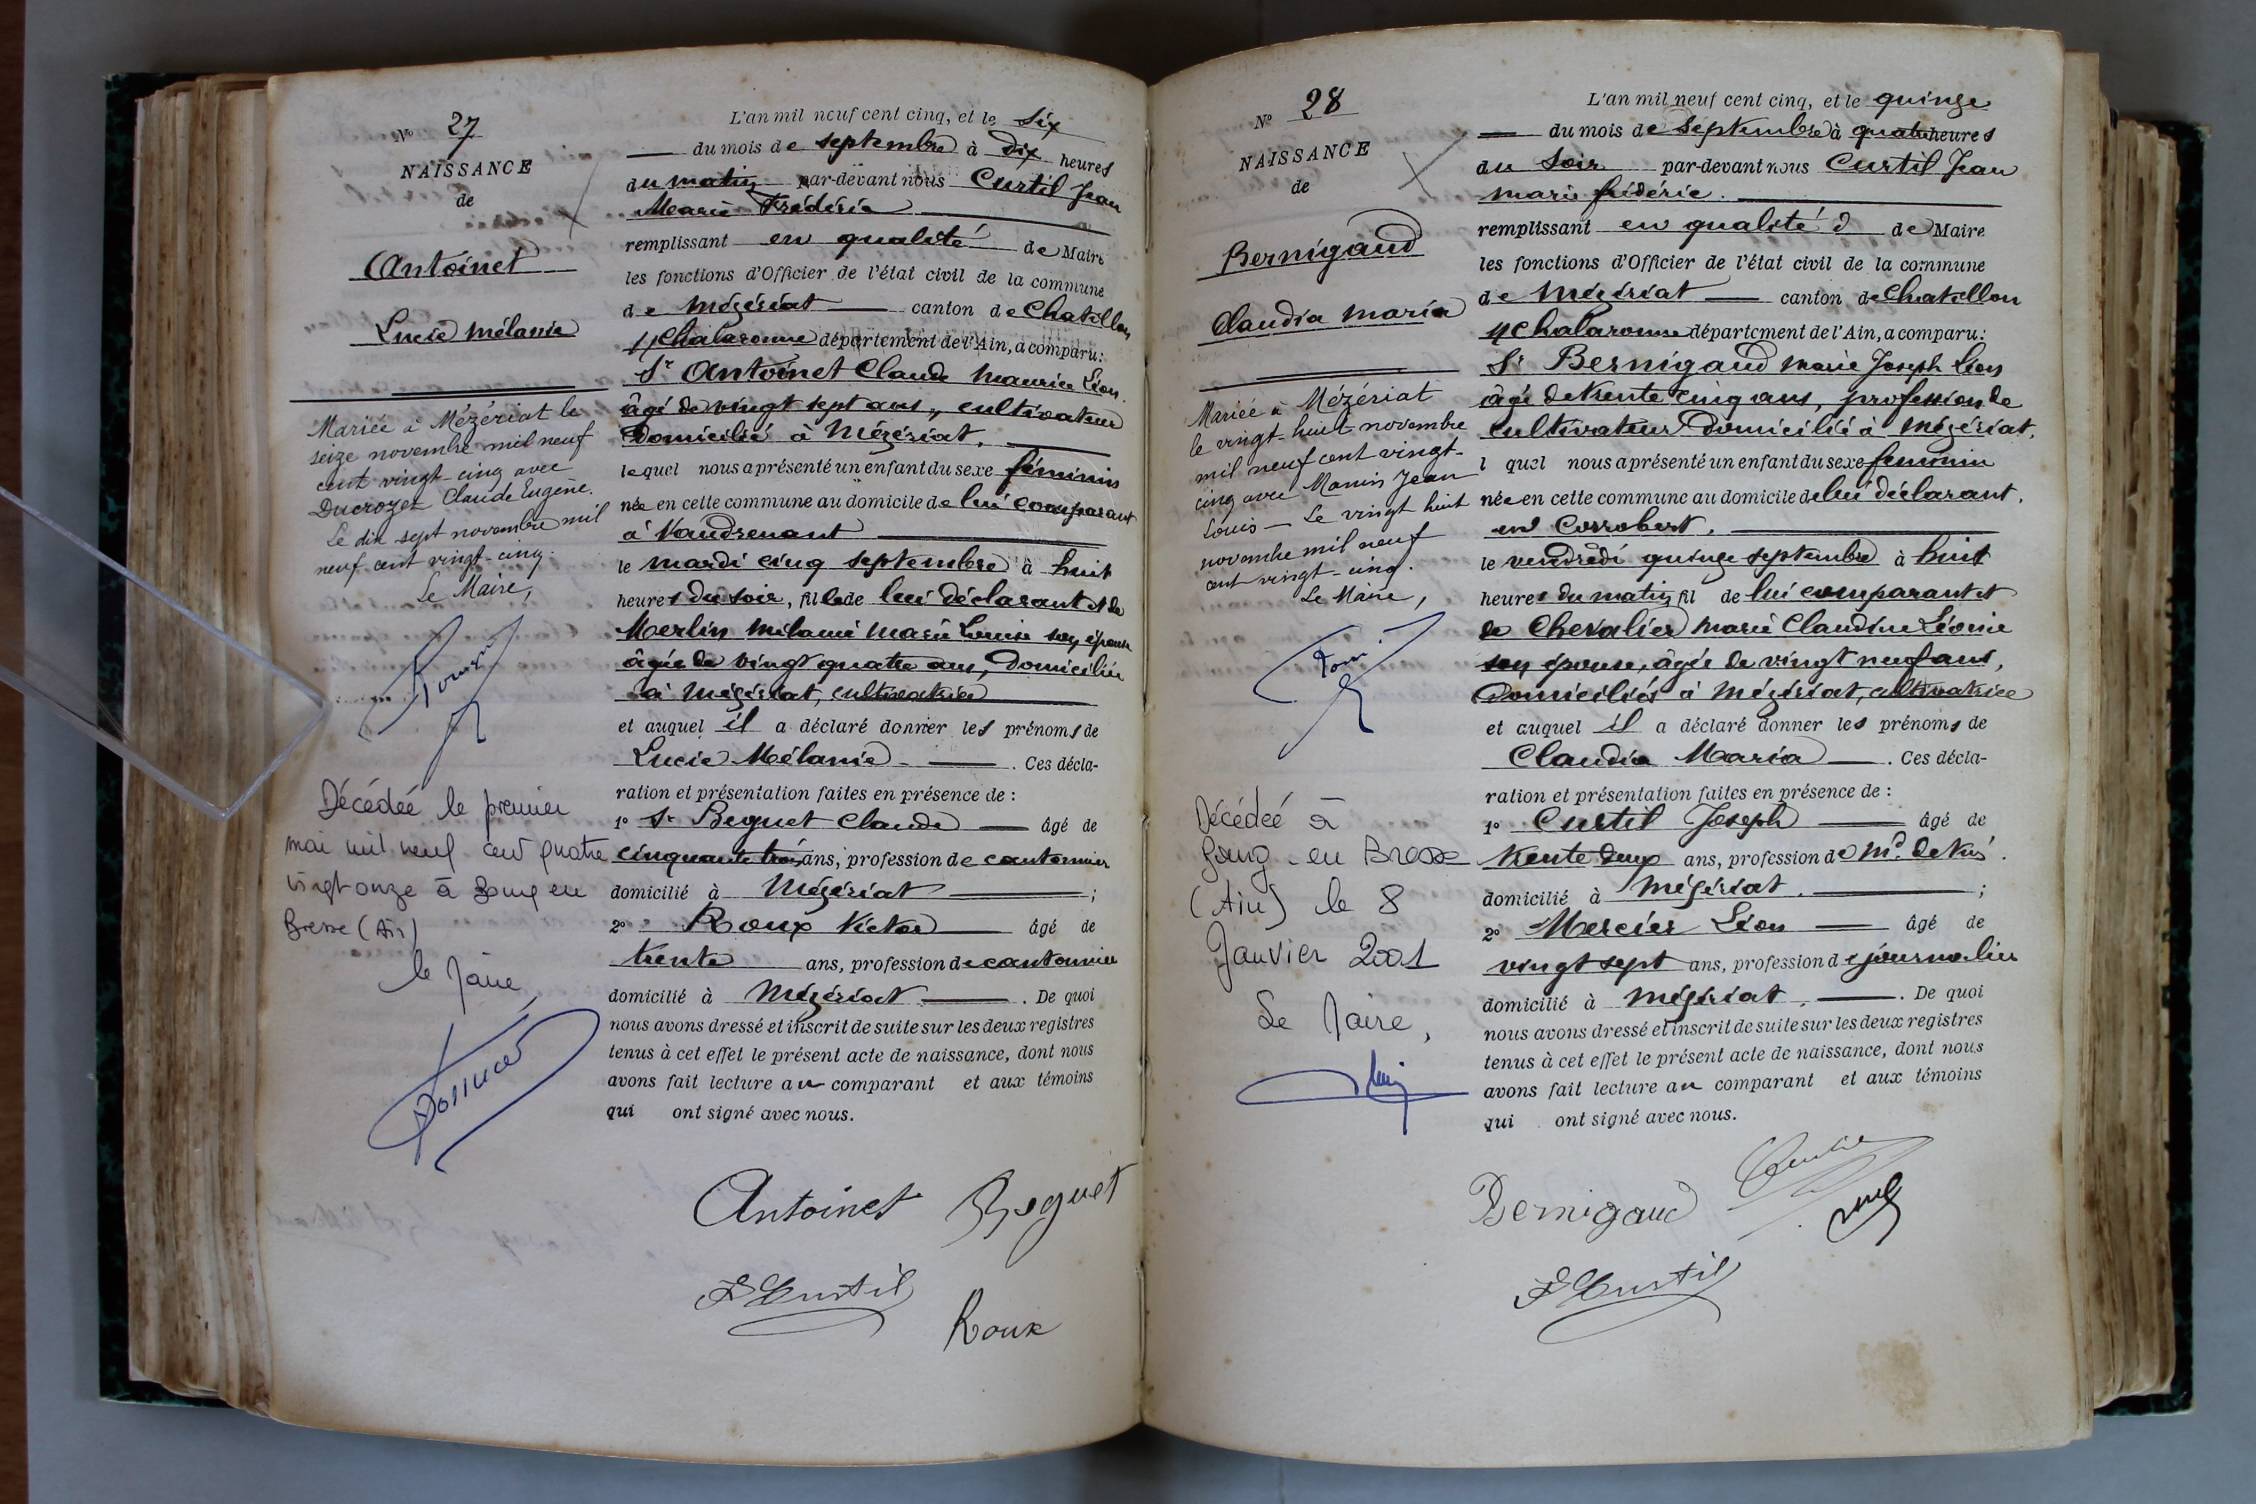 Nº 27
NAISSANCE
de
Antoinet
Lucie Mélanie
Mariée à Mézériat le
seize novembre mil neuf
cent vingt-cinq avec
Ducrozet Claude Eugène.
Le dix sept novembre mil
neuf cent vingt-cinq.
Le Maire,
Décédée le premier
mai mil neuf cent quatre
vingt onze à Bourg en
Bresse (Ain)
le Maire,
L'an mil neuf cent cinq, et le six
du mois de septembre à dix heures
du matin par-devant nous Curtil Jean
Marie Frédéric
remplissant en qualité de Maire
les fonctions d'Officier de l'état civil de la commune
de Mézériat canton de Chatillon
s/Chalaronne département de l'Ain, a comparu:
Sr Antoinet Claude Maurice Léon.
âgé de vingt sept ans, cultivateur
domicilié à Mézériat.
lequel nous a présenté un enfant du sexe féminin
née en cette commune au domicile de lui comparant
à Vaudrenant
le mardi cinq septembre à huit
heures du soir, fille de lui déclarant et de
Merlin Mélanie Marie Louise son épouse
âgée de vingt quatre ans, domiciliée
à Mézériat, cultivatrice
et auquel il a déclaré donner les prénoms de
Lucie Mélanie. Ces décla-
ration et présentation faites en présence de :
1º Sr Beguet Claude âgé de
cinquante trois ans, profession de cantonnier
domicilié à Mézériat ;
2º Roux Victor âgé de
trente ans, profession de cantonnier
domicilié à Mézériat. De quoi
nous avons dressé et inscrit de suite sur les deux registres
tenus à cet effet le présent acte de naissance, dont nous
avons fait lecture au comparant et aux témoins
qui ont signé avec nous.
Antoinet Beguet
F Curtil
Roux
Nº 28
NAISSANCE
de
Bernigaud
Claudia Maria
Mariée à Mézériat
le vingt-huit novembre
mil neuf cent vingt-
cinq avec Manin Jean
Louis — Le vingt huit
novembre mil neuf
cent vingt-cinq.
Le Maire,
Décédée à
Bourg-en Bresse
(Ain) le 8
Janvier 2001
Le Maire,
L'an mil neuf cent cinq, et le quinze
du mois de Septembre à quatre heures
du Soir par-devant nous Curtil Jean
marie frédéric.
remplissant en qualité d de Maire
les fonctions d'Officier de l'état civil de la commune
de Mézériat canton de Chatillon
s/Chalaronne département de l'Ain, a comparu:
Sr Bernigaud Marie Joseph Léon
âgé de trente cinq ans, profession de
cultivateur domicilié à Mézériat.
l quel nous a présenté un enfant du sexe feminin
née en cette commune au domicile de lui déclarant.
en Corrobert.
le vendredi quinze septembre à huit
heures du matin fil de lui comparant et
de Chevalier Marie Claudine Léonie
son épouse, âgée de vingt neuf ans,
domiciliés à Mézériat, cultivatrice
et auquel il a déclaré donner les prénoms de
Claudia Maria. Ces décla-
ration et présentation faites en présence de :
1º Curtil Joseph âgé de
trente deux ans, profession de Md. de Vins.
domicilié à Mézériat. ;
2º Mercier Léon âgé de
vingt sept ans, profession de journalier
domicilié à Mézériat. De quoi
nous avons dressé et inscrit de suite sur les deux registres
tenus à cet effet le présent acte de naissance, dont nous
avons fait lecture au comparant et aux témoins
qui ont signé avec nous.
Bernigaud
F Curtil